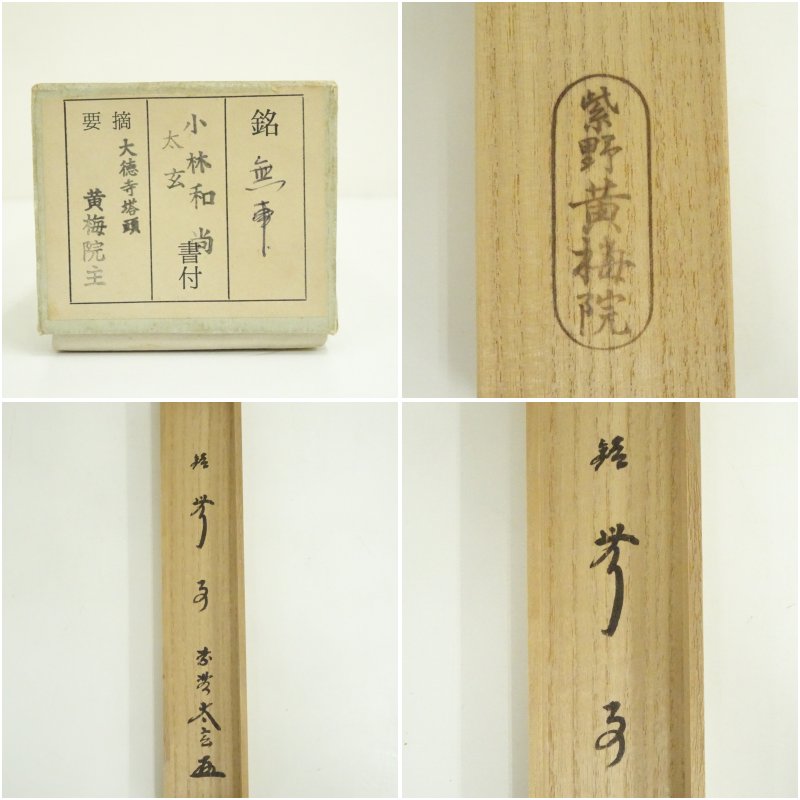 銘 無事
小林太玄
和尚 書付
摘要
大徳寺塔頭
黄梅院主
紫野黄梅院
銘
無
事
太玄
銘
無
事